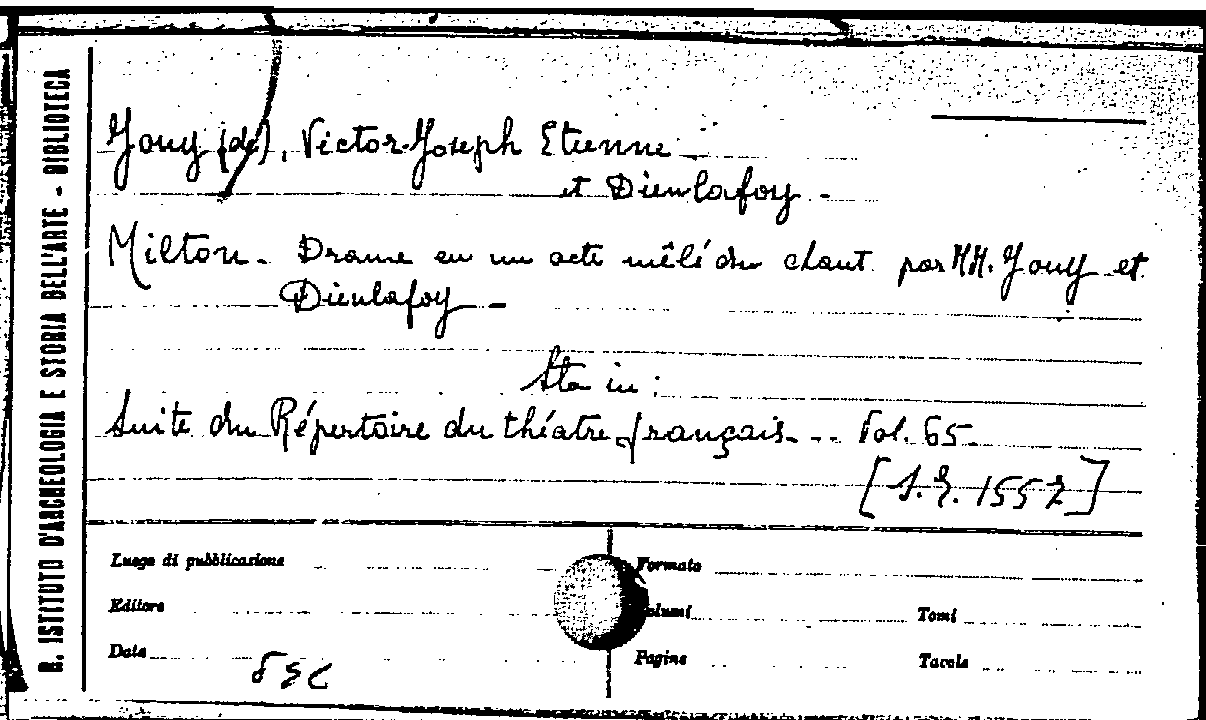 R. ISTITUTO D'ARCHEOLOGIA E STORIA DELL'ARTE - BIBLIOTECA
Jouy (de), Victor-Joseph Etienne
et Dieulafoy -
Milton. Drame en un acte mêlé du chant par MM. Jouy et
Dieulafoy -
Sta in:
Suite du Répertoire du théatre français - .. Vol. 65.
Luogo di pubblicazione
Formato
Editore
Volumi
Tomi
Data
Pagine
Tavole